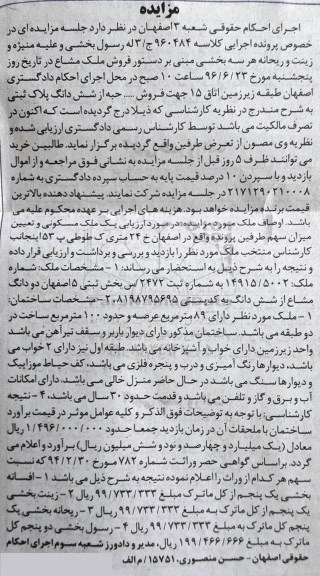 مزایده
اجرای احکام حقوقی شعبه ۳ اصفهان در نظر دارد جلسه مزایده ای در
خصوص پرونده اجرایی کلاسه ۹۶۰۴۸۴ ج/۳ له رسول بخشی و علیه منیژه و
زینت و ریحانه هر سه بخشی مبنی بر دستور فروش ملک مشاع در تاریخ روز
پنجشنبه مورخ ۹۶/۶/۲۳ ساعت ۱۰ صبح در محل اجرای احکام دادگستری
اصفهان طبقه زیرزمین اتاق ۱۵ جهت فروش .... حبه از شش دانگ پلاک ثبتی
به شرح مندرج در نظریه کارشناسی که ذیلا درج گردیده است که اکنون در
تصرف مالکیت می باشد توسط کارشناس رسمی دادگستری ارزیابی شده و
نظریه وی مصون از تعرض طرفین واقع گردیده برگزار نماید. طالبین خرید
می توانند ظرف ۵ روز قبل از جلسه مزایده به نشانی فوق مراجعه و از اموال
بازدید و با سپردن ۱۰ درصد قیمت پایه به حساب سپرده دادگستری به شماره
۲۱۷۱۲۹۰۲۱۰۰۰۸ در جلسه مزایده شرکت نمایند. پیشنهاد دهنده بالاترین
قیمت برنده مزایده خواهد بود. هزینه های اجرایی بر عهده محکوم علیه می
باشد. اوصاف ملک مورد مزایده: در مورد ارزیابی یک ملک مسکونی و تعیین
میزان سهم طرفین پرونده واقع در اصفهان خ ۲۴ متری ک طوطی پ ۵۳ اینجانب
کارشناس منتخب ملک مورد نظر را بازدید و بررسی و برداشت و ارزیابی قرار داده
و نتیجه را به شرح ذیل به استحضار می رساند: ۱- مشخصات ملک: شماره
ملک: ۱۴۹۱۵/۵۰۰۲ به شماره ثبت ۲۴۷۲/س بخش ثبتی ۵ اصفهان دو دانگ
مشاع از شش دانگ به کدپستی ۲۰۸۱۹۸۷۹۵۶۹۵- مشخصات ساختمان:
۱- ملک مورد نظر دارای ۸۹ مترمربع عرصه و حدود ۱۰۰ مترمربع ساخت در
دو طبقه می باشد. ساختمان مذکور دارای دیوار باربر و سقف تیرآهن می باشد
واحد زیرزمین دارای خواب و آشپزخانه می باشد. طبقه اول نیز دارای ۲ خواب می
باشد، دیوارها رنگ آمیزی و درب و پنجره فلزی می باشد، کف حیاط موزاییک
و دیوارها سنگ می باشد در حال حاضر منزل خالی می باشد. دارای امکانات
آب و برق و گاز و تلفن می باشد و قدمت حدود ۳۰ سال می باشد. ۴- نتیجه
کارشناسی: با توجه به توضیحات فوق الذکر و کلیه عوامل موثر در قیمت برآورد
ساختمان با ملحقات آن در زمان بازدید جمعا حدود ۱/۴۹۶/۰۰۰/۰۰۰ ریال
معادل (یک میلیارد و چهارصد و نود و شش میلیون ریال) برآورد و اعلام می
گردد. براساس گواهی حصر وراثت شماره ۷۸۲ مورخ ۹۴/۲/۳۰ که نسبت
سهم هر کدام از وراث را اعلام نموده نتیجه به شرح ذیل می باشد ۱- افسانه
بخشی یک پنجم از کل ماترک مبلغ ۹۹/۷۳۳/۳۳۳ ریال ۲- زینت بخشی
یک پنجم از کل ماترک به مبلغ ۹۹/۷۳۳/۳۳۳ ریال ۳- ریحانه بخشی یک
پنجم کل ماترک به مبلغ ۹۹/۷۳۳/۳۳۳ ریال ۴- رسول بخشی دو پنجم کل
ماترک به مبلغ ۱۹۹/۴۶۶/۶۶۶ ریال، مدیر و دادورز شعبه سوم اجرای احکام
حقوقی اصفهان - حسن منصوری، ۱۵۷۵۱/ م الف